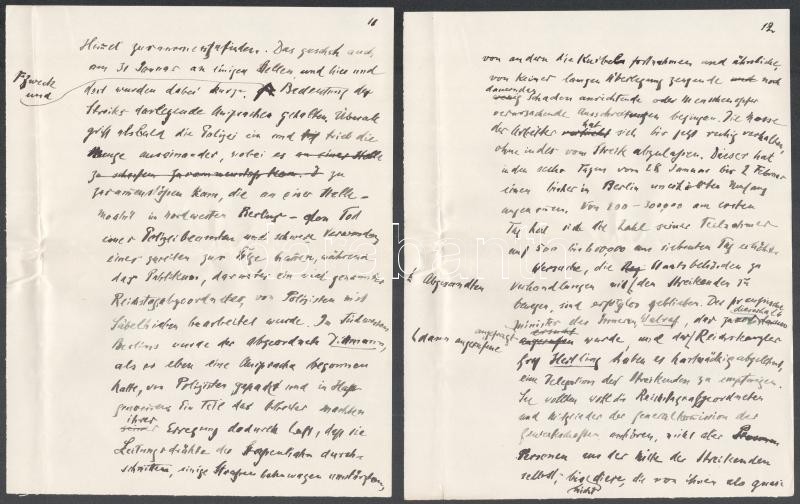 10
zusammenzufinden. Das geschah auch
am 31 Januar an einigen Stellen, und hier und
Zweck
und
dort wurden dabei kurze, Bedeutung des
Streiks darlegende Ansprachen gehalten. Überall
griff alsbald die Polizei ein und trieb die
Menge auseinander, wobei es an einer Stelle
zu scharfen Zusammenstössen kam. zu
Zusammenstössen kam, die an einer Stelle –
Moabit im nordwesten Berlins – den Tod
eines Polizeibeamten und schwere Verwundung
eines zweiten zur Folge hatten, während
das Publikum, darunter ein viel genannter
Reichstagsabgeordneter, von Polizisten mit
Säbelhieben bearbeitet wurde. Im Südwesten
Berlins wurde der Abgeordnete Dittmann,
als er eben eine Ansprache begonnen
hatte, von Polizisten gepackt und in Haft
genommen. Ein Teil der Arbeiter machten
ihrer
Erregung dadurch Luft, dass sie
Leitungsdrähte der Strassenbahn durch-
schnitten, einige Strassenbahnwagen umstürzten,
12
von andern die Kurbeln fortnahmen und ähnliche,
von keiner langen Überlegung zeugende noch
dauernden
wenig Schaden anrichtende oder Menschenopfer
verursachende Ausschreitungen begingen. Die Masse
hat
der Arbeiter sich bis jetzt ruhig verhalten,
ohne indes vom Streik abzulassen. Dieser hat
in den sechs Tagen vom 28 Januar bis 2 Februar
einen bisher in Berlin unerhörten Umfang
angenommen. Von 200-300000 am ersten
Tag hat sich die Zahl seiner Teilnehmer
auf 500 bis 600,000 am siebenten Tag erhöht.
Versuche, die Staatsbehörden zu
Abgesandten
Verhandlungen mit den Streikenden zu
bewegen, sind erfolglos geblieben. Der preussische
dieserhalb
Minister des Innern, Wallraf, der zuerst
angefragt
ersucht
(dann angerufene
angerufen wurde, und der Reichskanzler
Graf Hertling haben es hartnäckig abgelehnt,
eine Delegation der Streikenden zu empfangen.
Sie wollten wohl die Reichstagsabgeordneten
und Mitglieder der Generalkomission der
Gewerkschaften anhören, nicht aber
Personen aus der Mitte der Streikenden
selbst, diese, die von ihnen als quasi
nicht